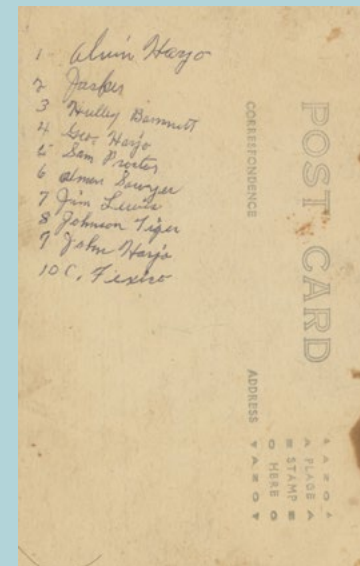 1 Alvin Harjo
2 Jasper
3 Hulley Barnnett
4 Geo. Harjo
5 Sam Proctor
6 Sawyer
7 Jim Lewis
8 Johnson Tiger
9 John Harjo
10 C. Fixico
POST CARD
CORRESPONDENCE
ADDRESS
AZO
PLACE
STAMP
HERE
AZO